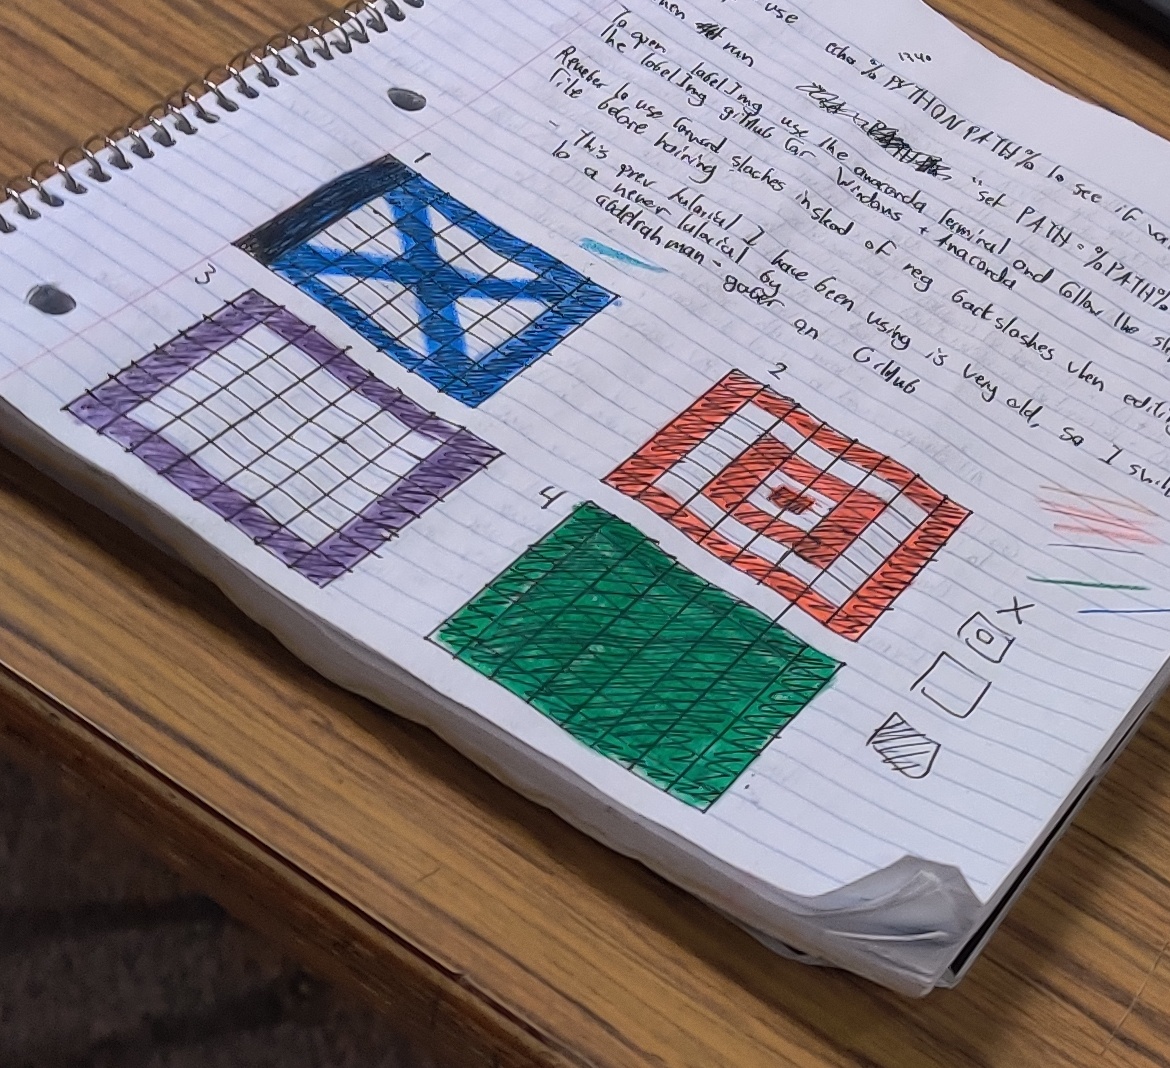 use echo % PYTHON PATH% to see if
then run "set PATH = % PATH%
To open labelImg use the anaconda terminal and follow the
the labelImg gitHub for Windows + Anaconda
Remeber to use forward slaches instead of reg backslashes when
file before training
- This prev tutorial I have been using is very old, so I
to a newer tutorial by
abdelrahman-gaber on GitHub
1
2
3
4